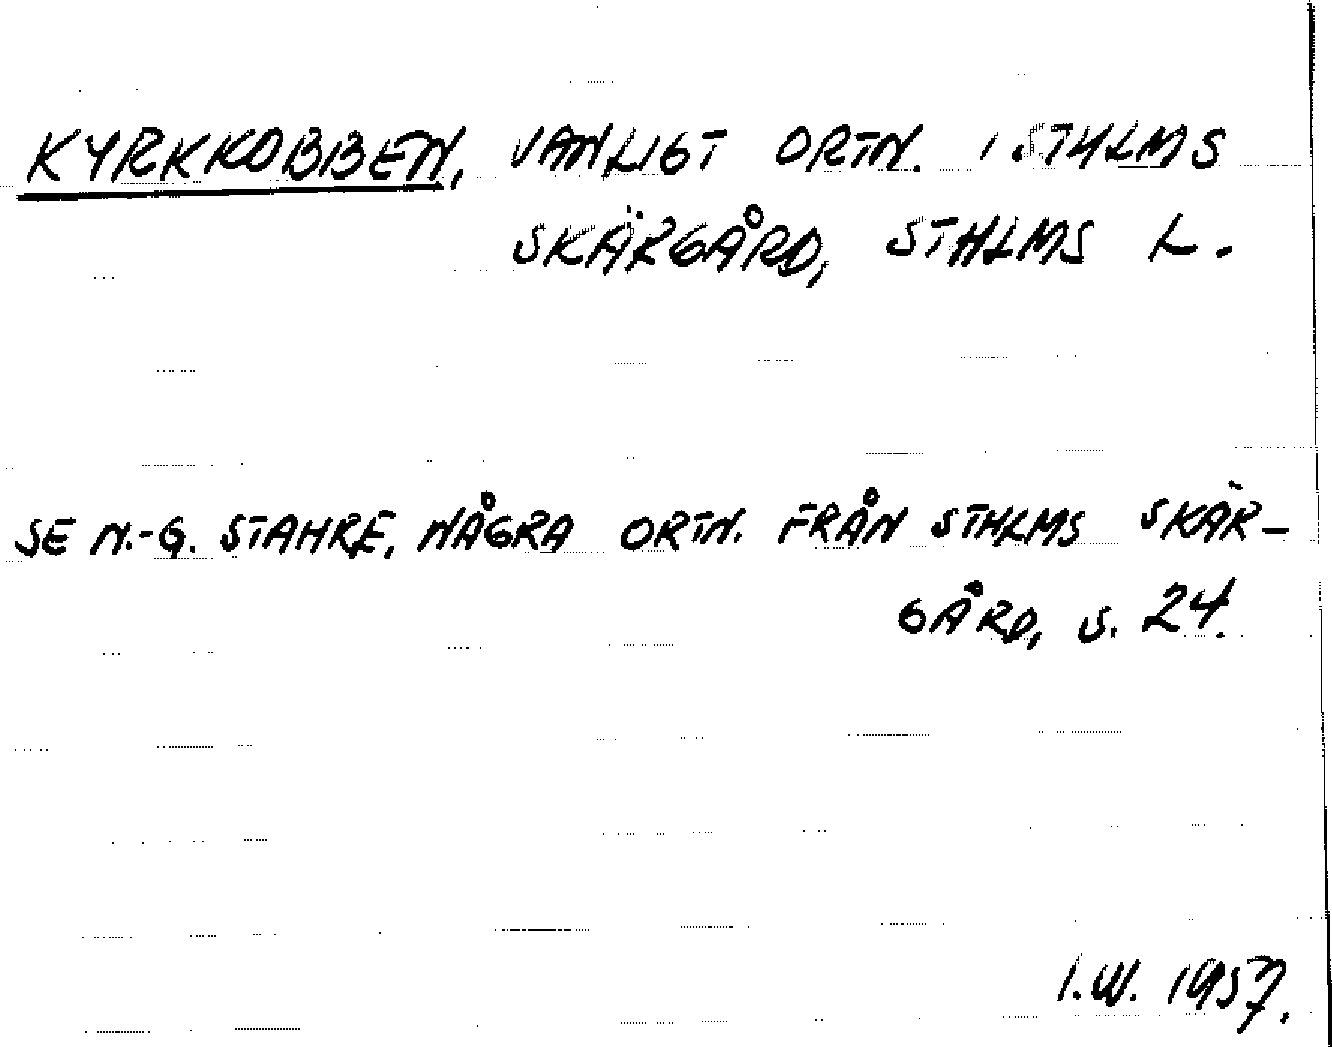 KYRKKOBBEN, VANLIGT ORTN. I STHLMS
SKÄRGÅRD, STHLMS L.
SE N.-G. STAHRE, NÅGRA ORTN. FRÅN STHLMS SKÄR-
GÅRD, S. 24.
I.W. 1957.